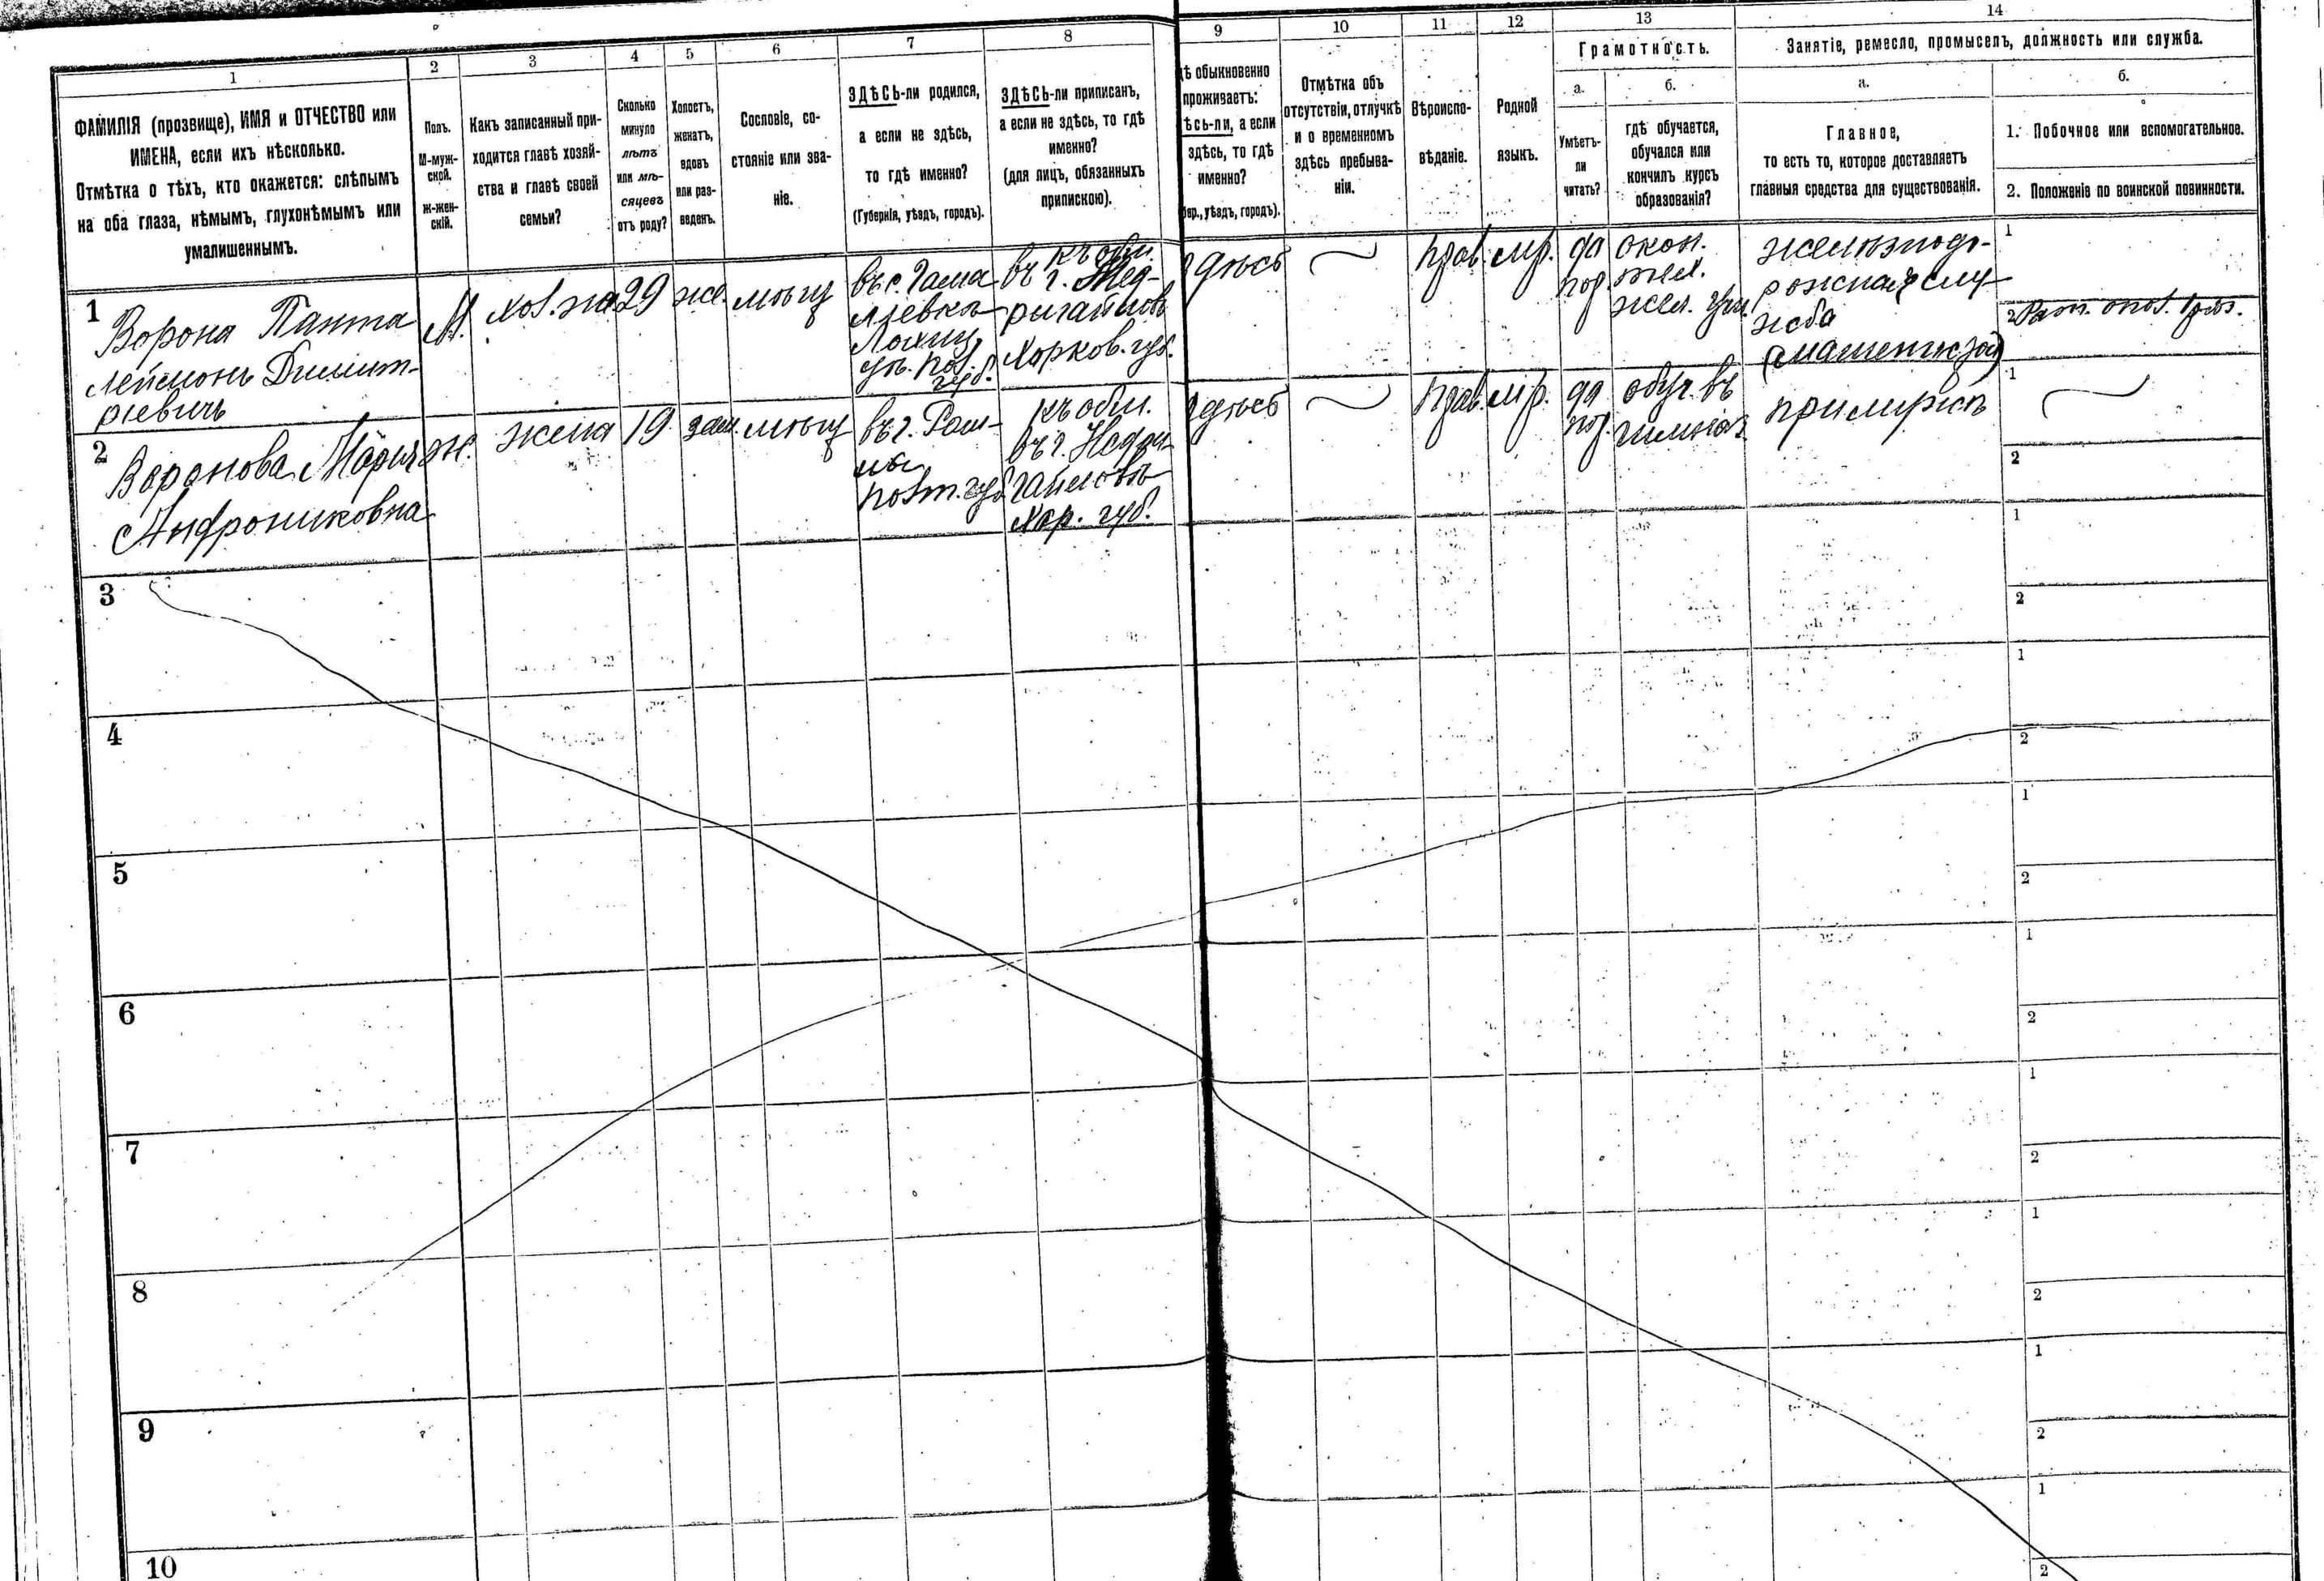 1
2
3
4
5
6
7
8
9
10
11
12
13
14
ФАМИЛІЯ (прозвище), ИМЯ и ОТЧЕСТВО или
ИМЕНА, если ихъ нѣсколько.
Отмѣтка о тѣхъ, кто окажется: слѣпымъ
на оба глаза, нѣмымъ, глухонѣмымъ или
умалишеннымъ.
Полъ.
М-муж-
ской.
ж-жен-
скій.
Какъ записанный при-
ходится главѣ хозяй-
ства и главѣ своей
семьи?
Сколько
минуло
лѣтъ
или мѣ-
сяцевъ
отъ роду?
Холостъ,
женатъ,
вдовъ
или раз-
веденъ.
Сословіе, со-
стояніе или зва-
ніе.
ЗДѢСЬ-ли родился,
а если не здѣсь,
то гдѣ именно?
(Губернія, уѣздъ, городъ).
ЗДѢСЬ-ли приписанъ,
а если не здѣсь, то гдѣ
именно?
(для лицъ, обязанныхъ
припискою).
дѣ обыкновенно
проживаетъ:
ѣсь-ли, а если
здѣсь, то гдѣ
именно?
бер., уѣздъ, городъ).
Отмѣтка объ
отсутствіи, отлучкѣ
и о временномъ
здѣсь пребыва-
ніи.
Вѣроиспо-
вѣданіе.
Родной
языкъ.
Грамотность.
а.
Умѣетъ-
ли
читать?
б.
гдѣ обучается,
обучался или
кончилъ курсъ
образованія?
Занятіе, ремесло, промыселъ, должность или служба.
а.
Главное,
то есть то, которое доставляетъ
главныя средства для существованія.
б.
1. Побочное или вспомогательное.
2. Положеніе по воинской повинности.
1
Ворона Панте
леймонъ Димит-
ріевичъ
М.
хоз.
29
же.
мѣщ
въ с. Гама
лѣевка
Лохвиц.
уѣ. Пол.
губ.
къ общ.
въ г. Нед-
ригайловъ
Харков. губ.
здѣсь
прав.
мр.
да
окон.
жел.
жел. учи
желѣзнодо-
рожная слу-
жба
1
2
2
Воронова Марія
Андрониковна
ж.
жена
19
зам.
мѣщ
въ г. Ром-
ны
Полт. губ
къ общ.
въ г. Недри
гайловъ
Хар. губ.
здѣсь
прав.
мр.
да
обуч. въ
гимназ.
при мужѣ
1
2
3
1
2
4
1
2
5
1
2
6
1
2
7
1
2
8
1
2
9
1
2
10
1
2